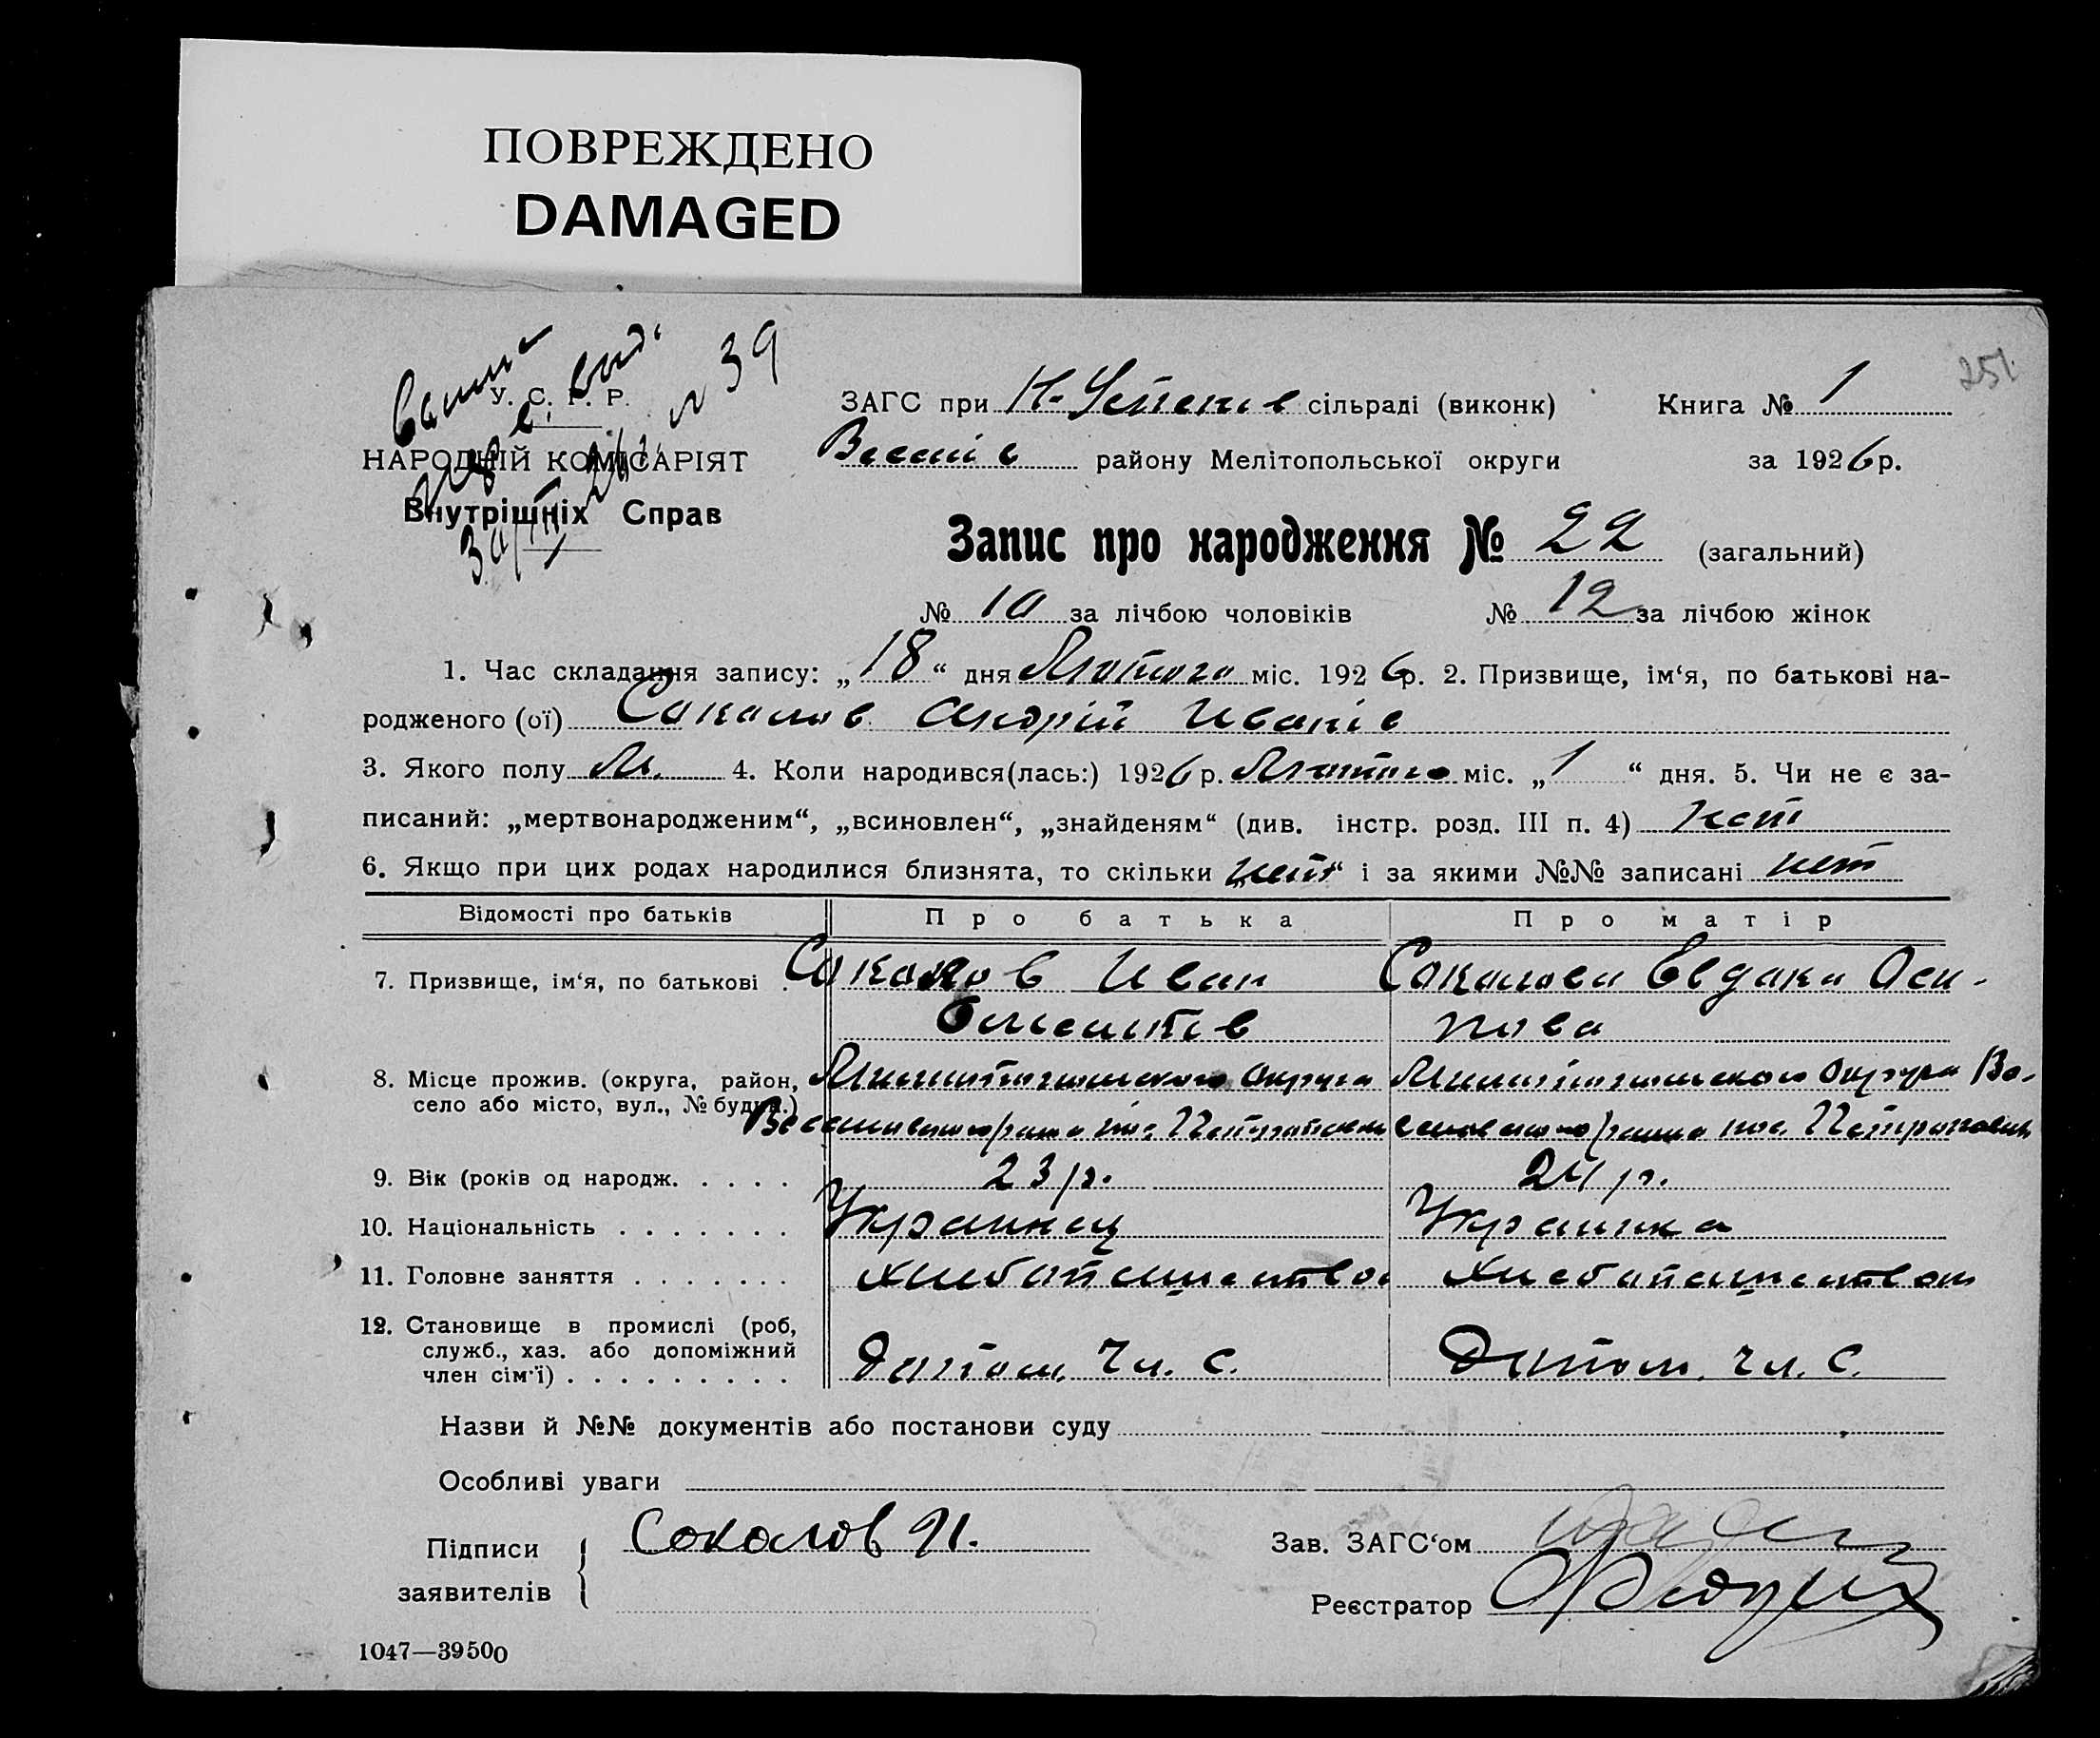 ПОВРЕЖДЕНО
DAMAGED
251
№ 39
У. С. Р. Р.
НАРОДНІЙ КОМІСАРІЯТ
Внутрішніх Справ
ЗАГС при Н-Успенів сільраді (виконк) Книга № 1
Веселів району Мелітопольської округи за 1926 р.
Запис про народження № 22 (загальний)
№ 10 за лічбою чоловіків № 12 за лічбою жінок
1. Час складання запису: „18“ дня Лютого міс. 1926 р. 2. Призвище, ім‘я, по батькові на-
родженого (ої) Сокалов Андрій Иванів
3. Якого полу М. 4. Коли народився(лась:) 1926 р. Лютого міс. „1“ дня. 5. Чи не є за-
писаний: „мертвонародженим“, „всиновлен“, „знайденям“ (див. інстр. розд. III п. 4) нет
6. Якщо при цих родах народилися близнята, то скільки „нет“ і за якими №№ записані нет
Відомості про батьків Про батька Про матір
7. Призвище, ім‘я, по батькові . Сокалов Иван Сокалова Евдоки Оси-
пова
8. Місце прожив. (округа, район, Округа Округа Ве-
село або місто, вул., № будин.)
9. Вік (років од народж. . . . . 23 р. 24 р.
10. Національність . . . . . . . Украинец Украинка
11. Головне заняття . . . . . . .
12. Становище в промислі (роб,
служб., хаз. або допоміжний Допом. чл. с. Допом. чл. с.
член сім‘ї) . . . . . . . . .
Назви й №№ документів або постанови суду
Особливі уваги
Підписи Сокалов И. Зав. ЗАГС‘ом
заявителів Реєстратор
1047—39500